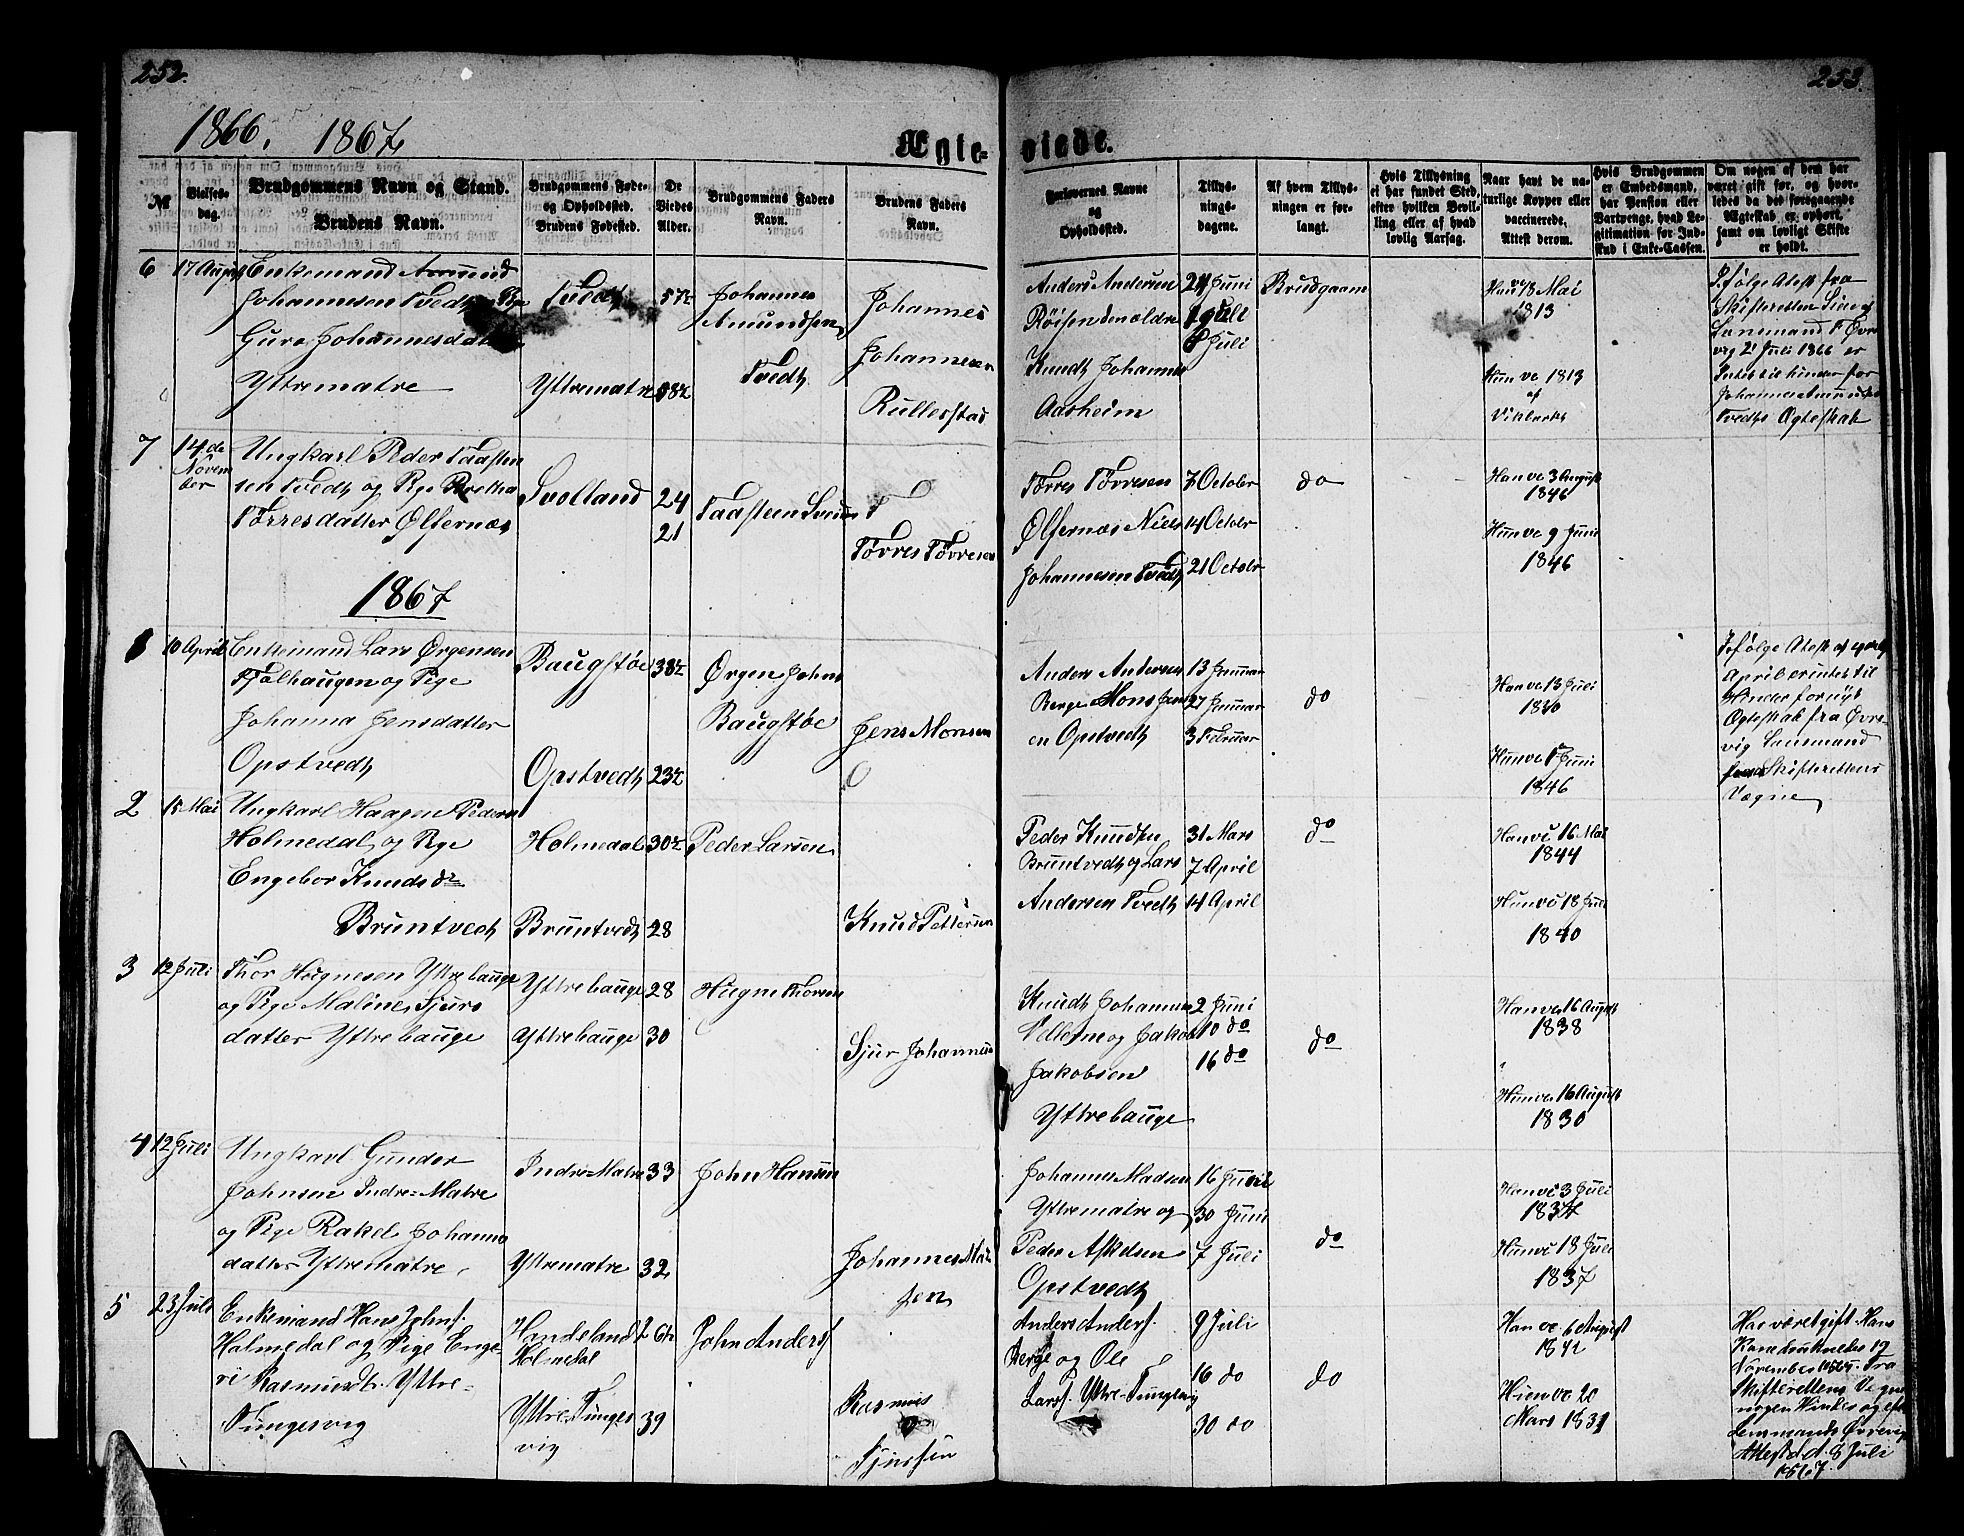 252.
253.
1866. 1867
Ægte-
viede.
№
Vielses-
dag.
Brudgommens Navn og Stand.
Brudens Navn.
Brudgommens Føde-
og Opholdssted.
Brudens Fødested.
De
Viedes
Alder.
Brudgommens Faders
Navn.
Brudens Faders
Navn.
Forlovernes Navne
og
Opholdssted.
Tillys-
nings-
dagene.
Af hvem Tillys-
ningen er for-
langt.
Hvis Tillysning
ei har fundet Sted,
efter hvilken Bevil-
ling eller af hvad
lovlig Aarsag.
Naar havt de na-
turlige Kopper eller
vaccinerede,
Attest derom.
Hvis Brudgommen
er Embedsmand,
har Pension eller
Vartpenge, hvad Le-
gitimation for Ind-
skud i Enke-Cassen.
Om nogen af dem har
været gift før, og hvor-
ledes da det foregaaende
Ægteskab er ophørt,
samt om lovligt Skifte
er holdt.
6
17 August
Enkemand Amund
Johannesen Tvedt Pige
Guro Johannesdatter
Yttrematre
Tvedt
Yttrematre
57½
38½
Johannes
Amundsen
Tvedt
Johannes
Johannesen
Rullestad
Anders Andersen
Røisen den ældre
Knudt Johannes
Aasheim
24 Juni
1 Juli
8 Juli
Brudgaam
Han ve 18 Mai
1813
Hun ve 1813
af
Ifølge Atest fra
Skifteretten
Lensmand T Øvre
vig 21 Juli 1866 er
Intet til hinder for
Johannes Amunds
Tvedts Ægteskab
7
14 de
Novem
ber
Ungkarl Peder Taasten
sen Tvedt og Pige Bretha
Tørresdatter Ølfernæs
Svolland
24
21
Taasteen
Tørres Tørresen
Tørres Tørresen
Ølfernæs Niels
Johannesen Tvedt
7 October
14 October
21 October
do
Han ve 3 August
1846
Hun ve 9 Juni
1846
1867
1
10 April
Enkemand Lars Ørgensen
Tjølhaugen og Pige
Johanna Jensdatter
Opstvedt
Baugstøe
Opstvedt
38½
23½
Ørgen Johns
Baugstøe
Jens Monsen
Anders Andersen
Berge Mons Jens
en Opstvedt
13 Januar
27 Januar
3 Februar
do
Han ve 13 Juli
1830
Hun ve 17 Juni
1846
Ifølge Atest af
April er intet til
Hinder for nyt
Ægteskab fra Øvre-
vig Lansmand
Skifterettens
Vægne
2
15 Mai
Ungkarl Haagen Peders
Holmedal og Pige
Engebor Knudsdr
Bruntvedt
Holmedal
Bruntvedt
30½
28
Peder Larsen
Knud Pettersen
Peder Knudsen
Bruntvedt og Lars
Andersen Tvedt
31 Mars
7 April
14 April
do
Han ve 16 Mai
1844
Hun ve 18 Juli
1840
3
12 Juli
Thor Høgnesen Yttrebauge
og Pige Maline Sjurs
datter Yttrebauge
Yttrebauge
Yttrebauge
28
30
Høgne Thorsen
Sjur Johannesen
Knudt Johannes
Vellerne og Jakob
Jakobsen
Yttrebauge
2 Juni
10 do
16 do
do
Han ve 16 August
1838
Hun ve 16 August
1830
4
12 Juli
Ungkarl Gunder
Johnsen Indre-Matre
og Pige Rakel Johannes
datter Yttrematre
Indre-Matre
Yttrematre
33
32
John Hansen
Johannes Mad
sen
Johannes Madsen
Yttrematre og
Peder Askelsen
Opstvedt
16 Juni
30 Juni
7 Juli
do
Han ve 3 Juli
1834
Hun ve 18 Juli
1837
5
23 Juli
Enkemand Hans Johns.
Holmedal og Pige Enge-
ri Rasmusdt. Yttre-
Tungesvig
Handeland
Holmedal
Yttre-Tunges
vig
39
John Anders.
Rasmus
Anders Anders.
Berge og Ole
Lars. Yttre-Tungesvig
9 Juli
16 do
30 do
do
Han ve 6 August
1842
Hun ve 20
Mars 1831
Har været gift. Hans
Kone
November
Skifterettens Vegne
ingen Hinder
Lensmands Øvrevig
Attest d.d. 8 Juli
1867.